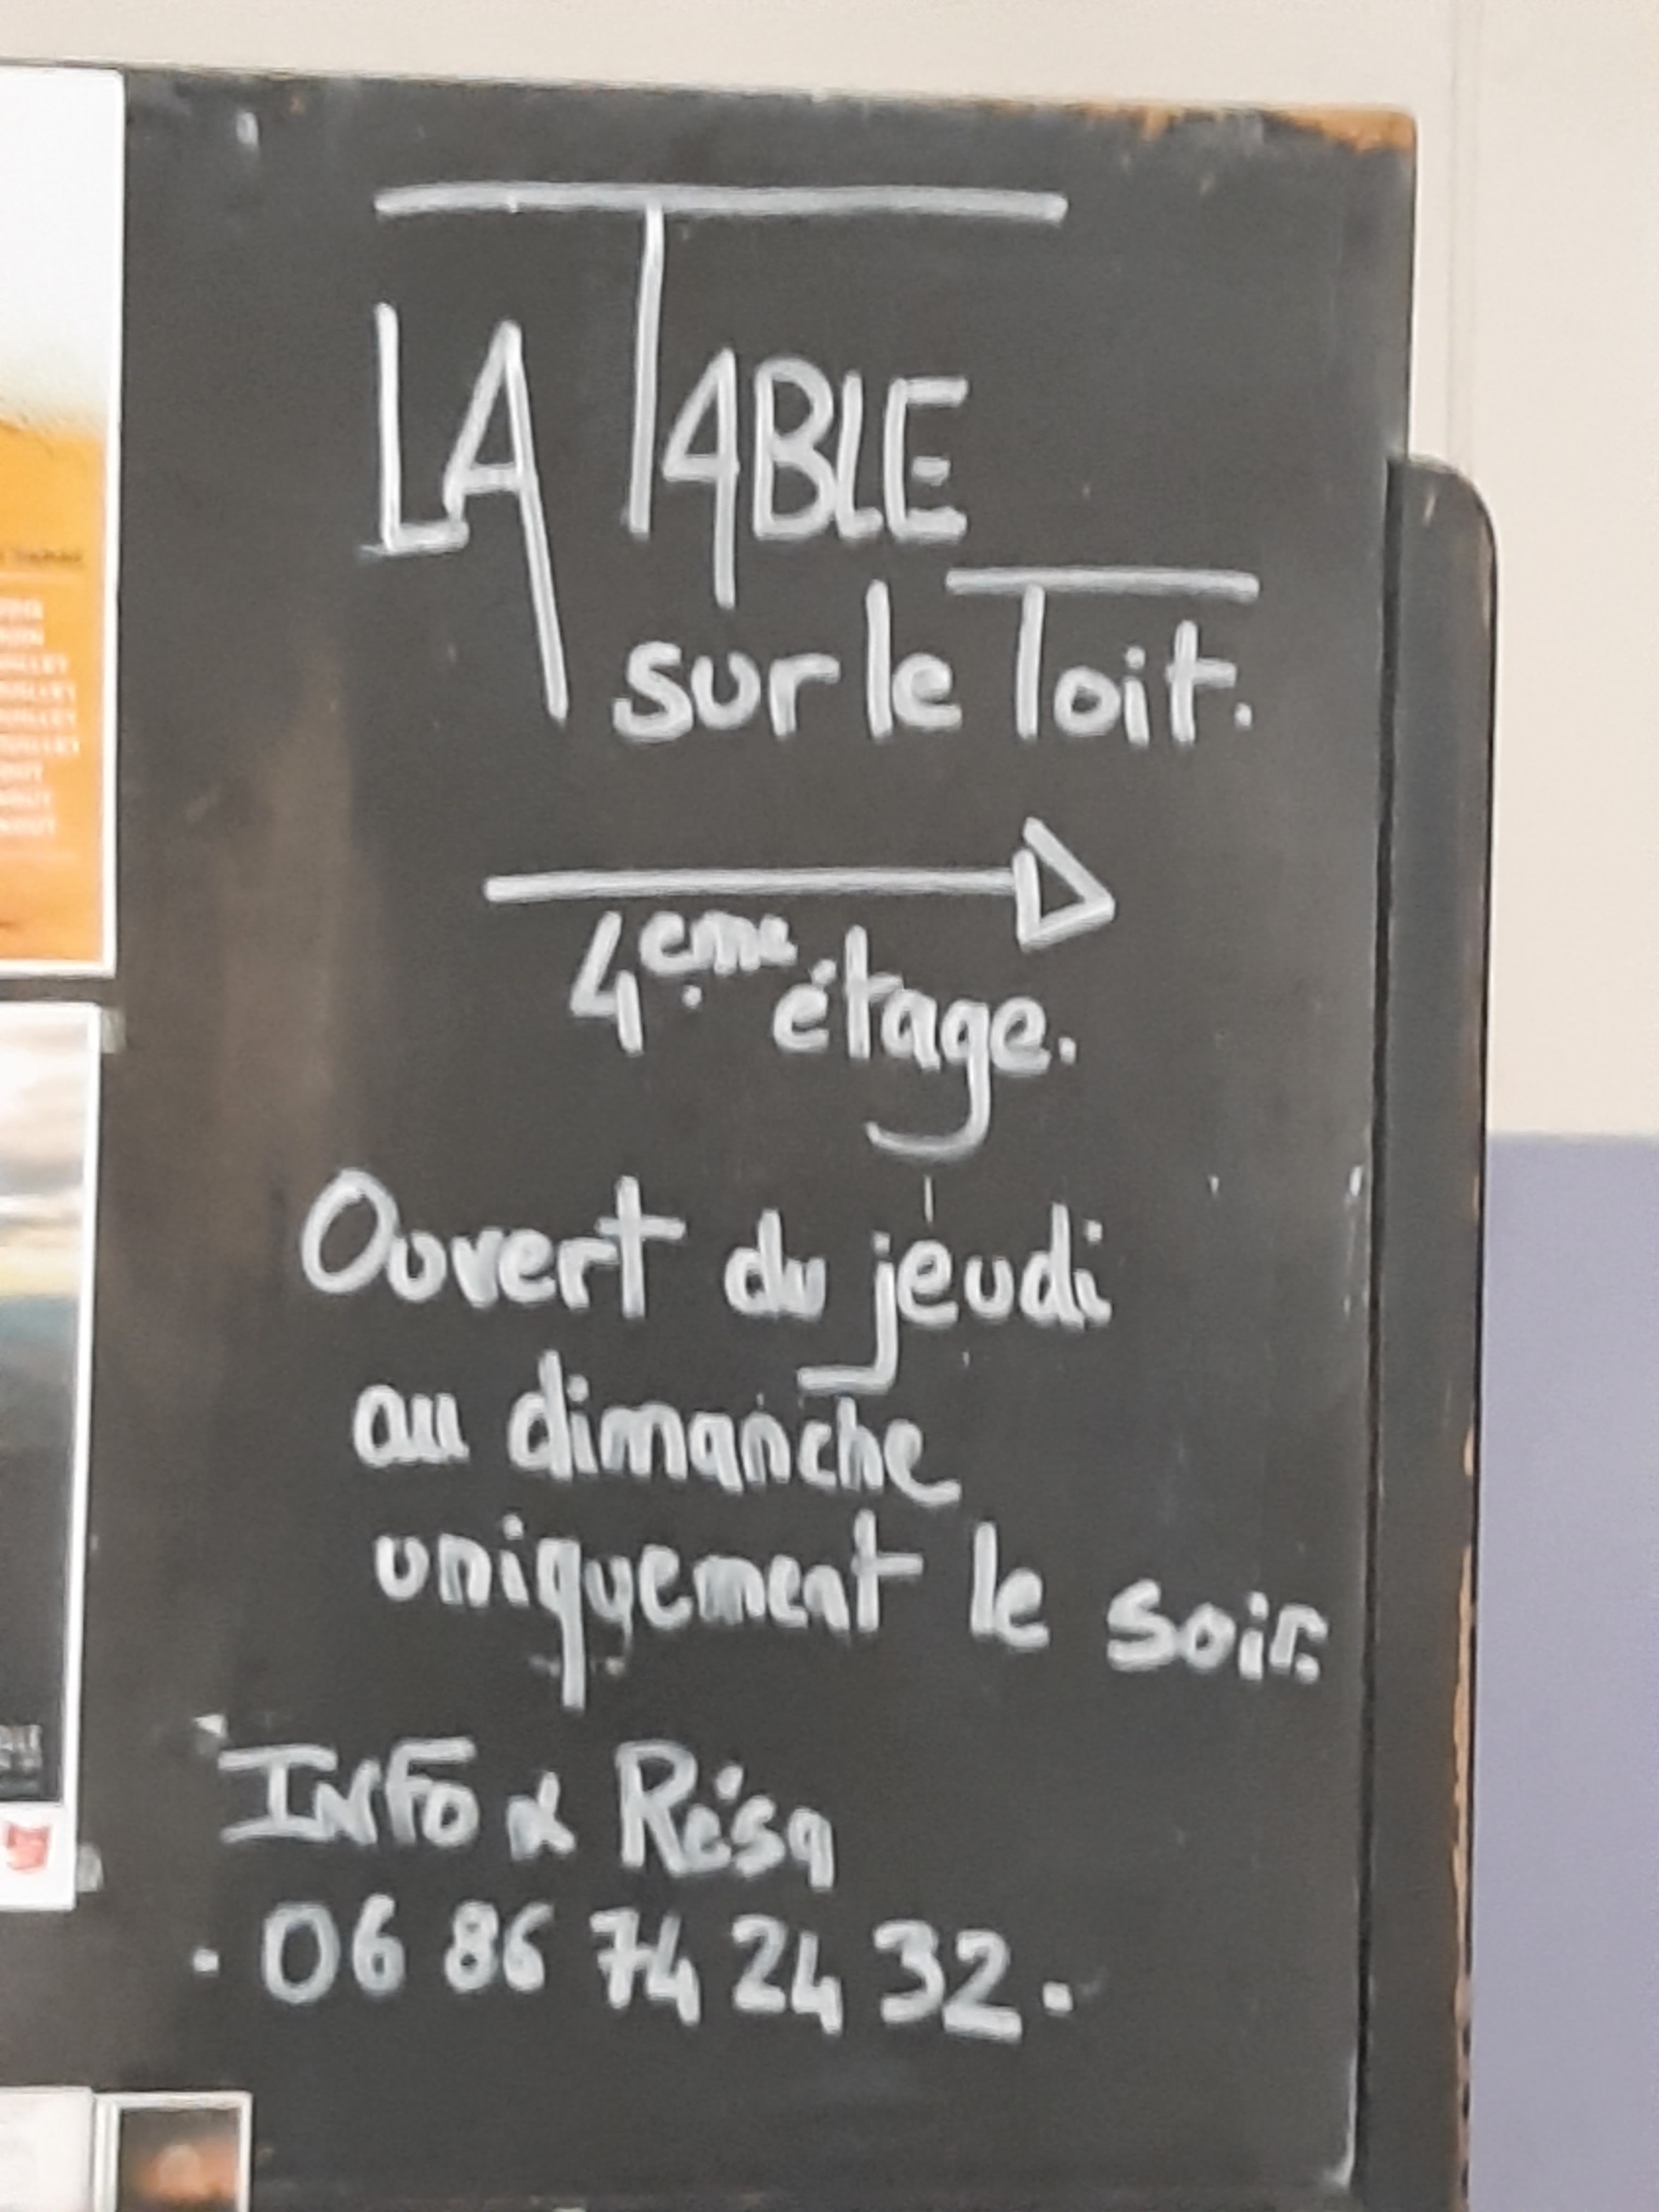 LA TABLE
sur le Toit.
4eme étage.
Ouvert du jeudi
au dimanche
uniquement le soir.
INFO & Résa
. 06 86 74 24 32 .